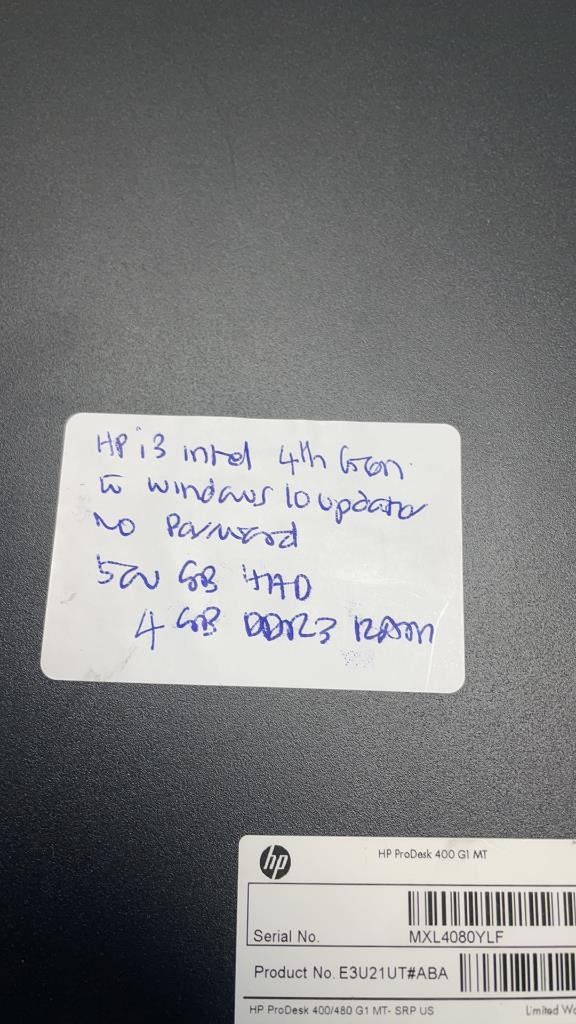 HP i3 intel 4th Gen
windows 10 updated
No Password
500 GB HDD
4 GB DDR3 RAM
hp
HP ProDesk 400 G1 MT
Serial No. MXL4080YLF
Product No. E3U21UT#ABA
HP ProDesk 400/480 G1 MT- SRP US Limited